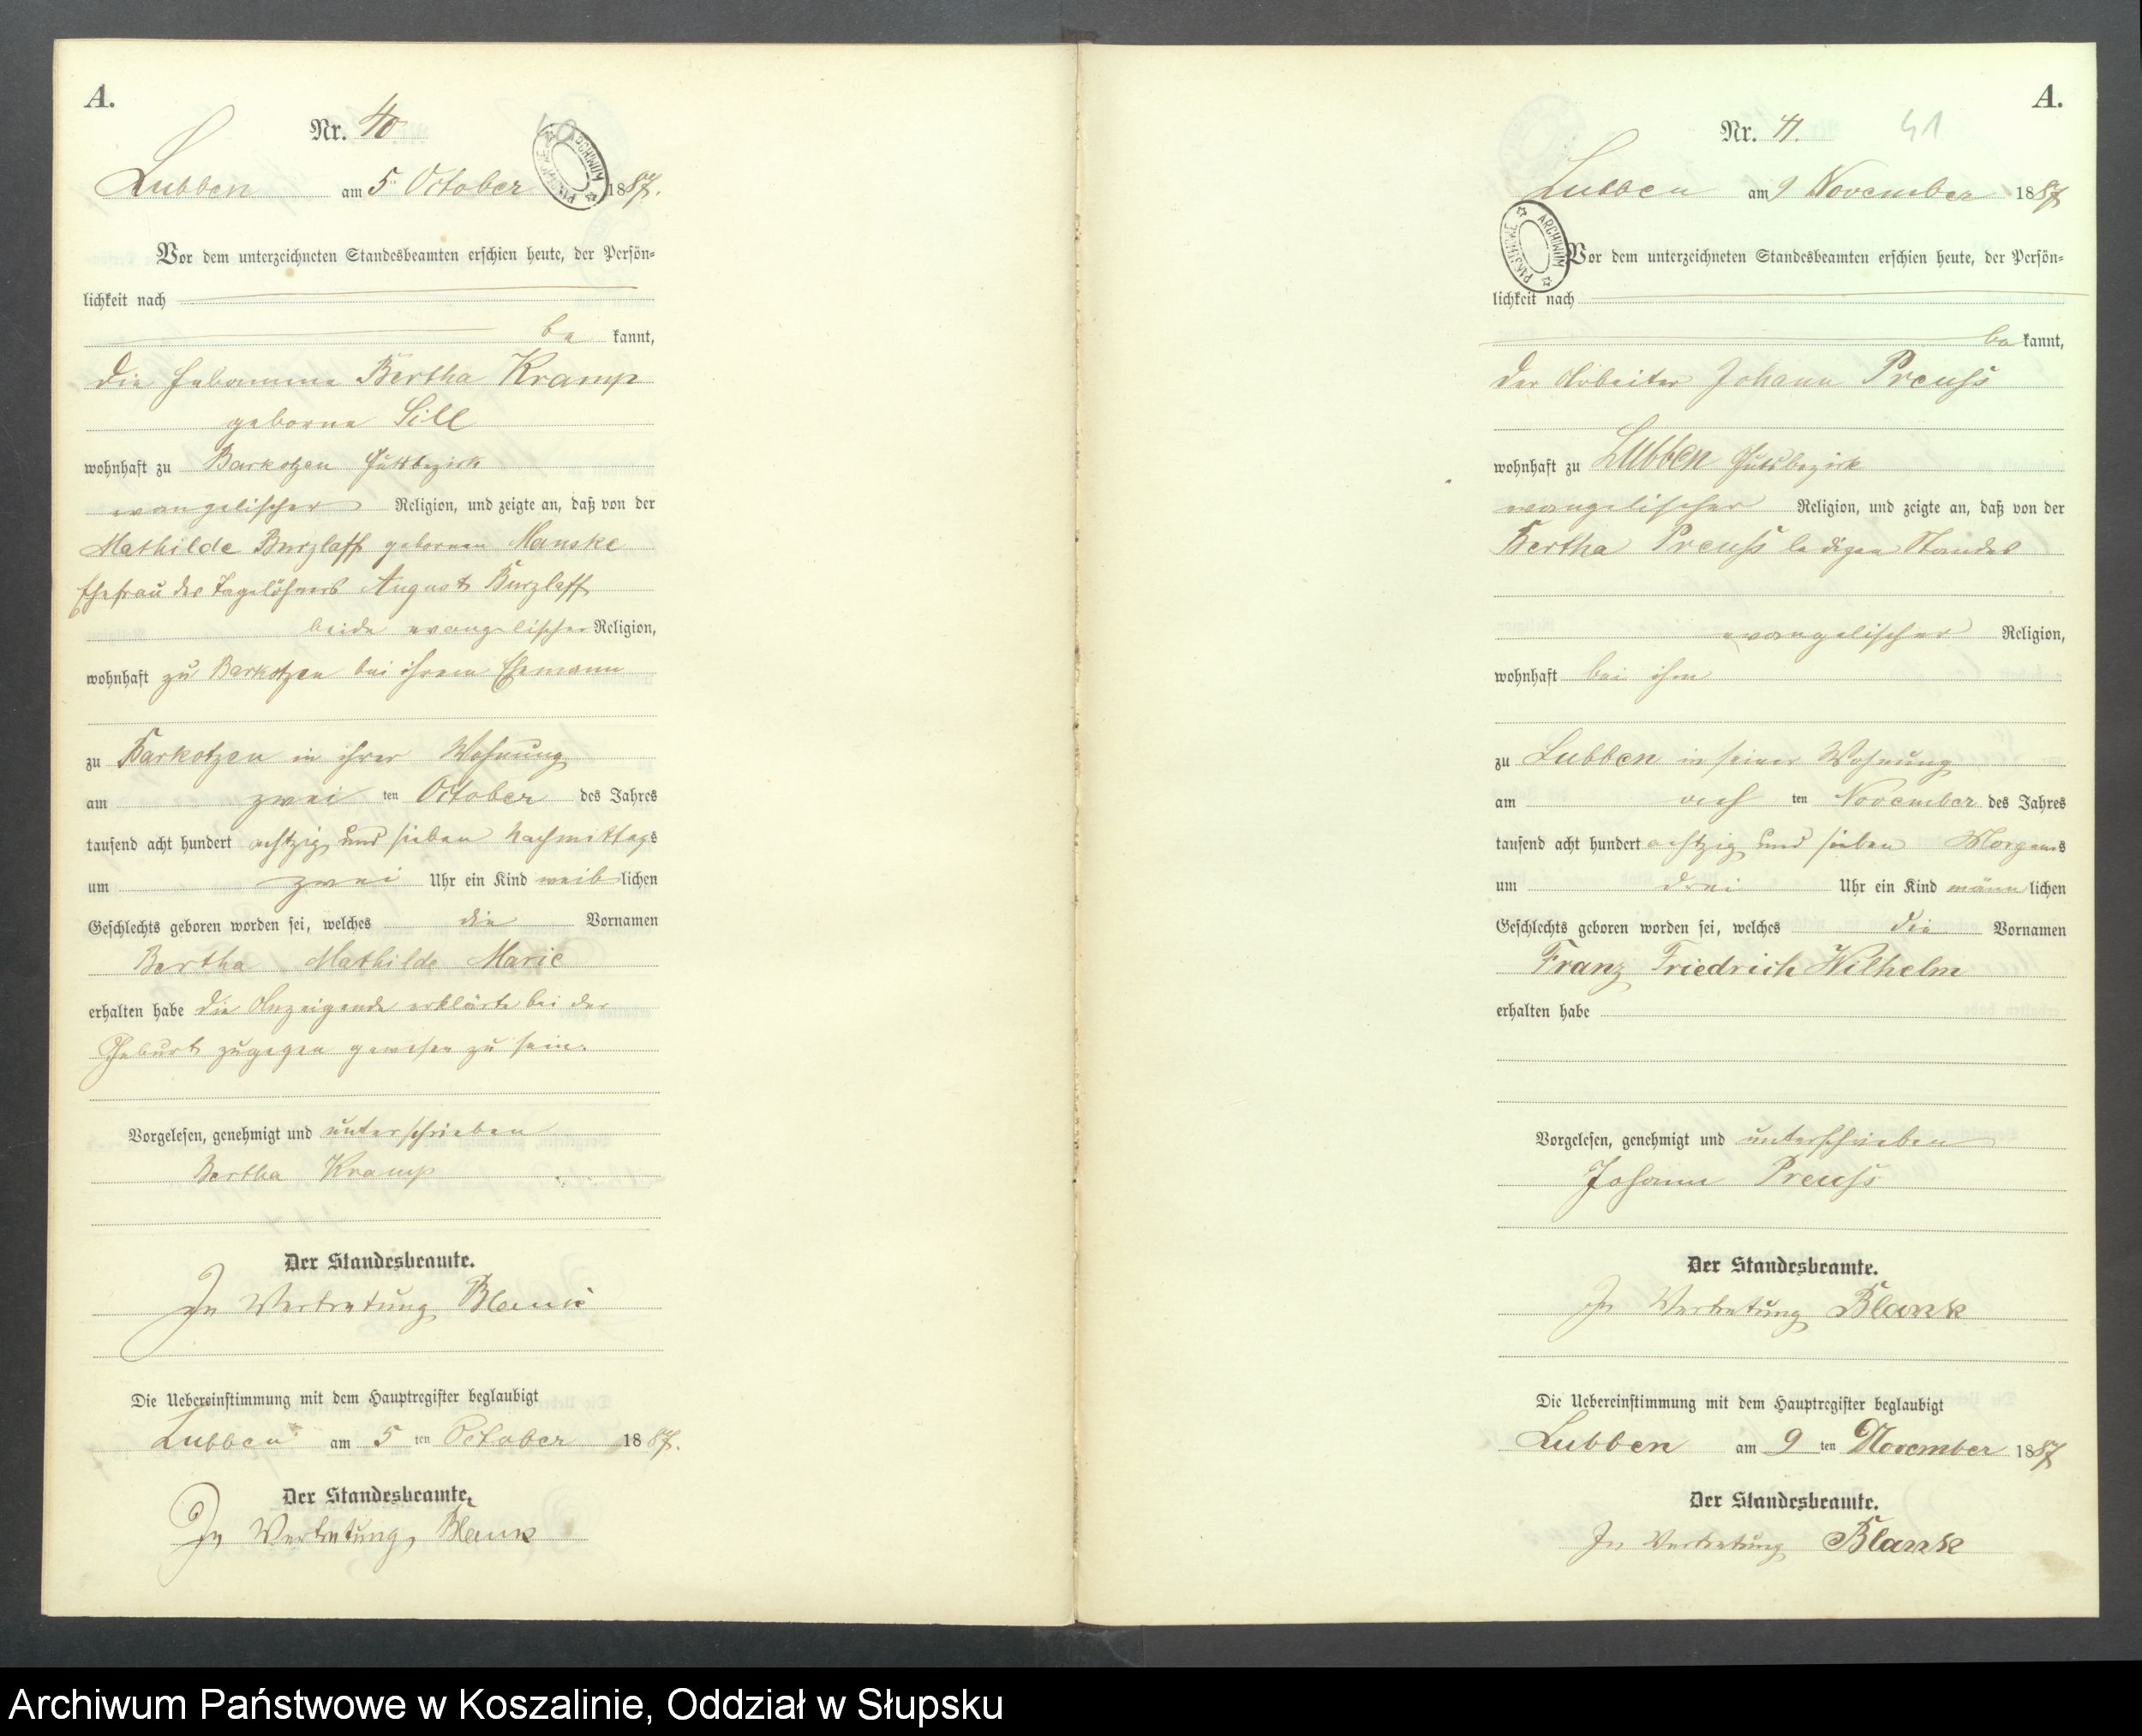 A.
Nr. 40
40
Lubben am 5 October 1887.
ARCHIWUM PAŃSTWOWE
Vor dem unterzeichneten Standesbeamten erschien heute, der Persön-
lichkeit nach
be kannt,
die Hebamme Bertha Kramp
geborne Sill
wohnhaft zu Barkotzen Gutsbezirk
evangelischer Religion, und zeigte an, daß von der
Mathilde Burzlaff gebornen Manske
Ehefrau des Tagelöhners August Burzlaff
beide evangelischer Religion,
wohnhaft zu Barkotzen bei ihrem Ehemann
zu Barkotzen in ihrer Wohnung
am zwei ten October des Jahres
tausend acht hundert achtzig und sieben Nachmittags
um zwei Uhr ein Kind weib lichen
Geschlechts geboren worden sei, welches die Vornamen
Bertha Mathilde Marie
erhalten habe die Anzeigende erklärte bei der
Geburt zugegen gewesen zu sein.
Vorgelesen, genehmigt und unterschrieben
Bertha Kramp
Der Standesbeamte.
In Vertretung Blank
Die Uebereinstimmung mit dem Hauptregister beglaubigt
Lubben am 5 ten October 1887.
Der Standesbeamte.
In Vertretung Blank
A.
Nr. 41.
41
Lubben am 9 November 1887
ARCHIWUM PAŃSTWOWE
Vor dem unterzeichneten Standesbeamten erschien heute, der Persön-
lichkeit nach
be kannt,
der Arbeiter Johann Preuß
wohnhaft zu Lubben Gutsbezirk
evangelischer Religion, und zeigte an, daß von der
Bertha Preuß ledigen Standes
evangelischer Religion,
wohnhaft bei ihm
zu Lubben in seiner Wohnung
am acht ten November des Jahres
tausend acht hundert achtzig und sieben Morgens
um drei Uhr ein Kind männ lichen
Geschlechts geboren worden sei, welches die Vornamen
Franz Friedrich Wilhelm
erhalten habe
Vorgelesen, genehmigt und unterschrieben
Johann Preuß
Der Standesbeamte.
In Vertretung Blank
Die Uebereinstimmung mit dem Hauptregister beglaubigt
Lubben am 9 ten November 1887
Der Standesbeamte.
In Vertretung Blank
Archiwum Państwowe w Koszalinie, Oddział w Słupsku